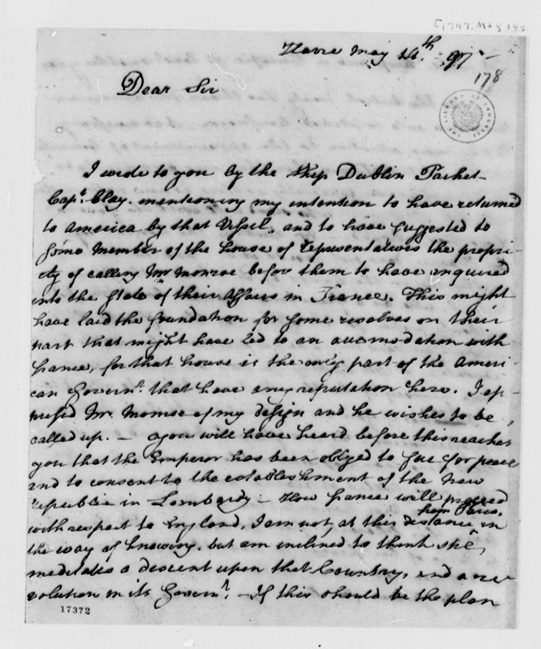 [1797, May 14]
Havre May 14th, 97
178
Dear Sir
I wrote to you by the Ship Dublin Packet
Capt. Clay. mentioning my intention to have returned
to America by that Vessel, and to have suggested to
some Member of the house of representatives the propri-
ety of calling Mr Monroe before them to have enquired
into the State of their Affairs in France. This might
have laid the foundation for some resolves on their
part that might have led to an accomodation with
france, for that house is the only part of the Ameri-
can Governt. that have any reputation here. I ap-
prised Mr. Monroe of my design and he wishes to be
called up. — you will have heard before this reaches
you that the Emperor has been obliged to sue for peace
and to consent to the establishment of the new
republic in Lombardy — How france will proceed
with respect to England, I am not, at this distance from Paris, in
the way of knowing, but am inclined to think she
meditates a descent upon that Country, and a re-
volution in its Governt. — If this should be the plan
17372